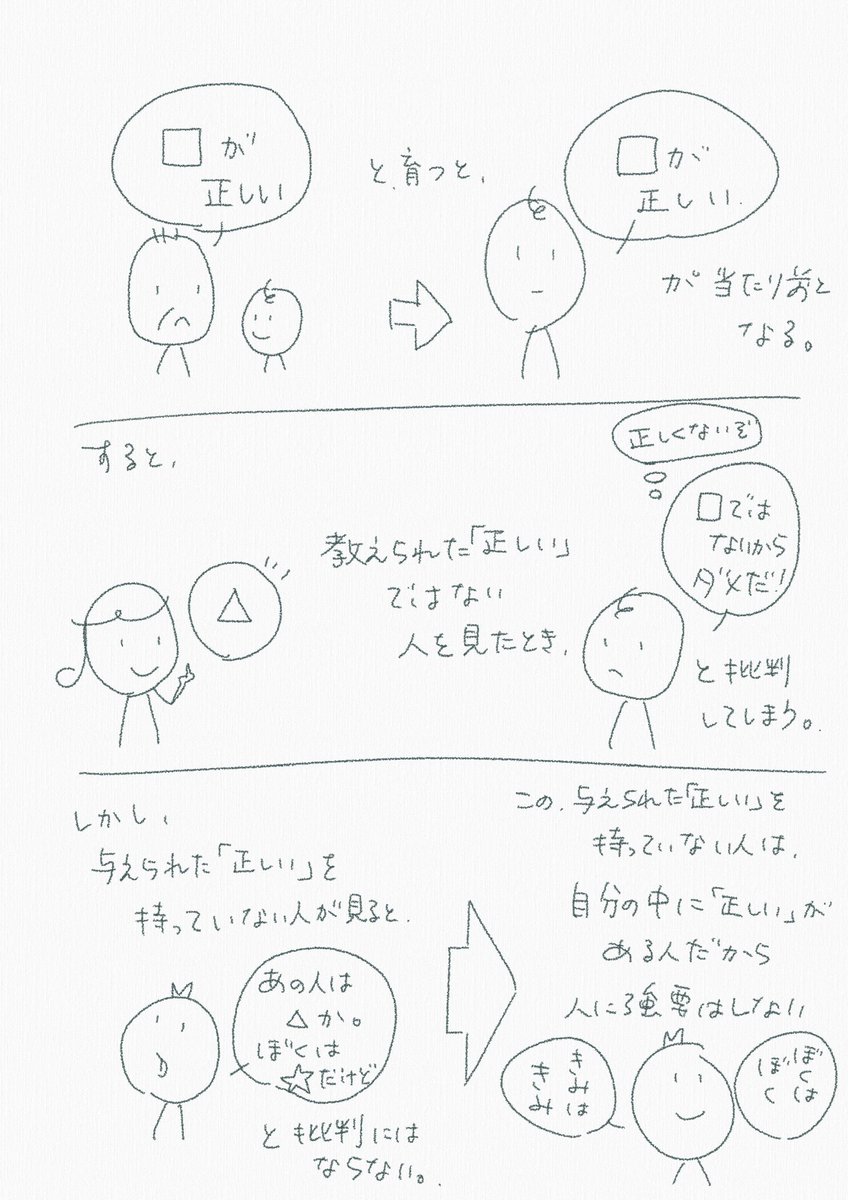 □が
正しい
と、育つと、
□が
正しい.
が当たり前と
なる。
すると、
△
教えられた「正しい」
ではない
人を見たとき、
正しくないぞ
□では
ないから
ダメだ!
と批判
してしまう。
しかし、
与えられた「正しい」を
持っていない人が見ると、
あの人は
△か。
ぼくは
☆だけど
と批判には
ならない。
この、与えられた「正しい」を
持っていない人は、
自分の中に「正しい」が
ある人だから
人に強要はしない
きみは
きみ
ぼくは
ぼく